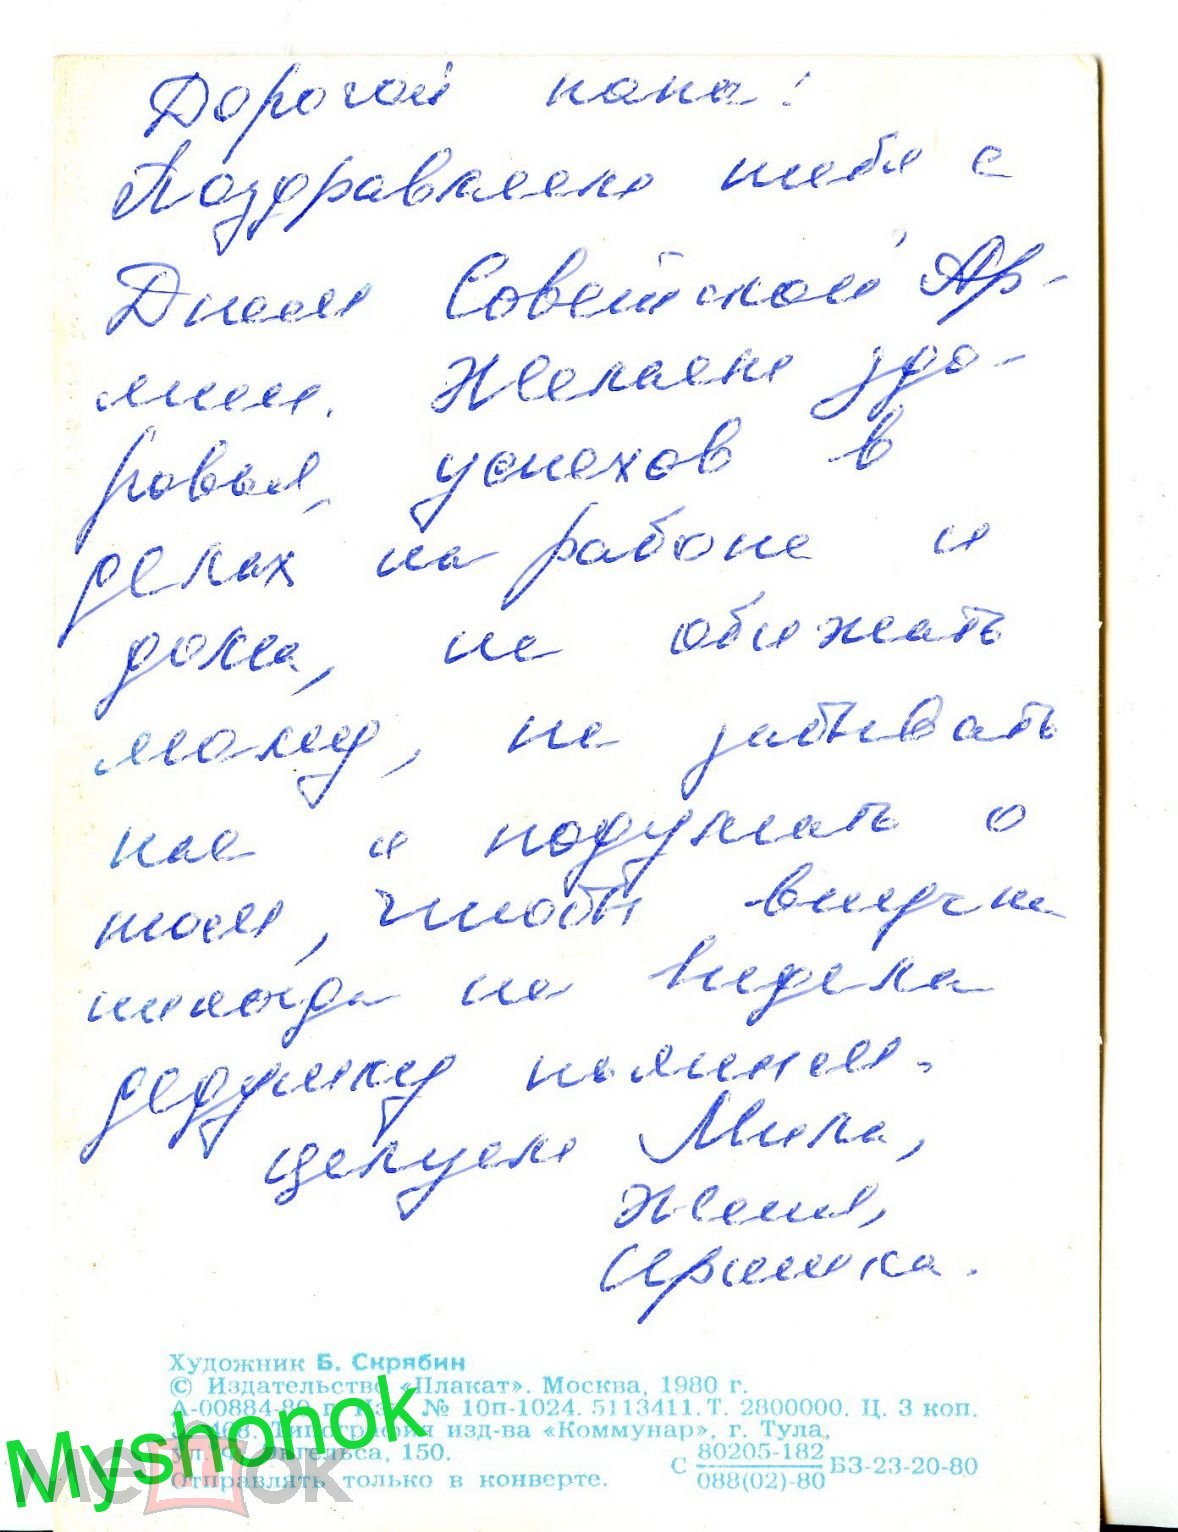 Дорогой папа!
Поздравляем тебя с
Днем Советской Ар-
мии. Желаем здо-
ровья, успехов в
делах на работе и
дома, не обижать
маму, не забывать
нас и подумать о
том, чтобы внучка
никогда не видела
дедушку пьяным.
Целуем Мила,
Женя,
Иришка.
Художник Б. Скрябин
© Издательство «Плакат». Москва, 1980 г.
А-00884-80 г. № 10п-1024. 5113411. Т. 2800000. Ц. 3 коп.
Типография изд-ва «Коммунар», г. Тула,
ул. Ф. Энгельса, 150.
Отправлять только в конверте.
С 80205-182 БЗ-23-20-80
088(02)-80
Myshonok
мешок